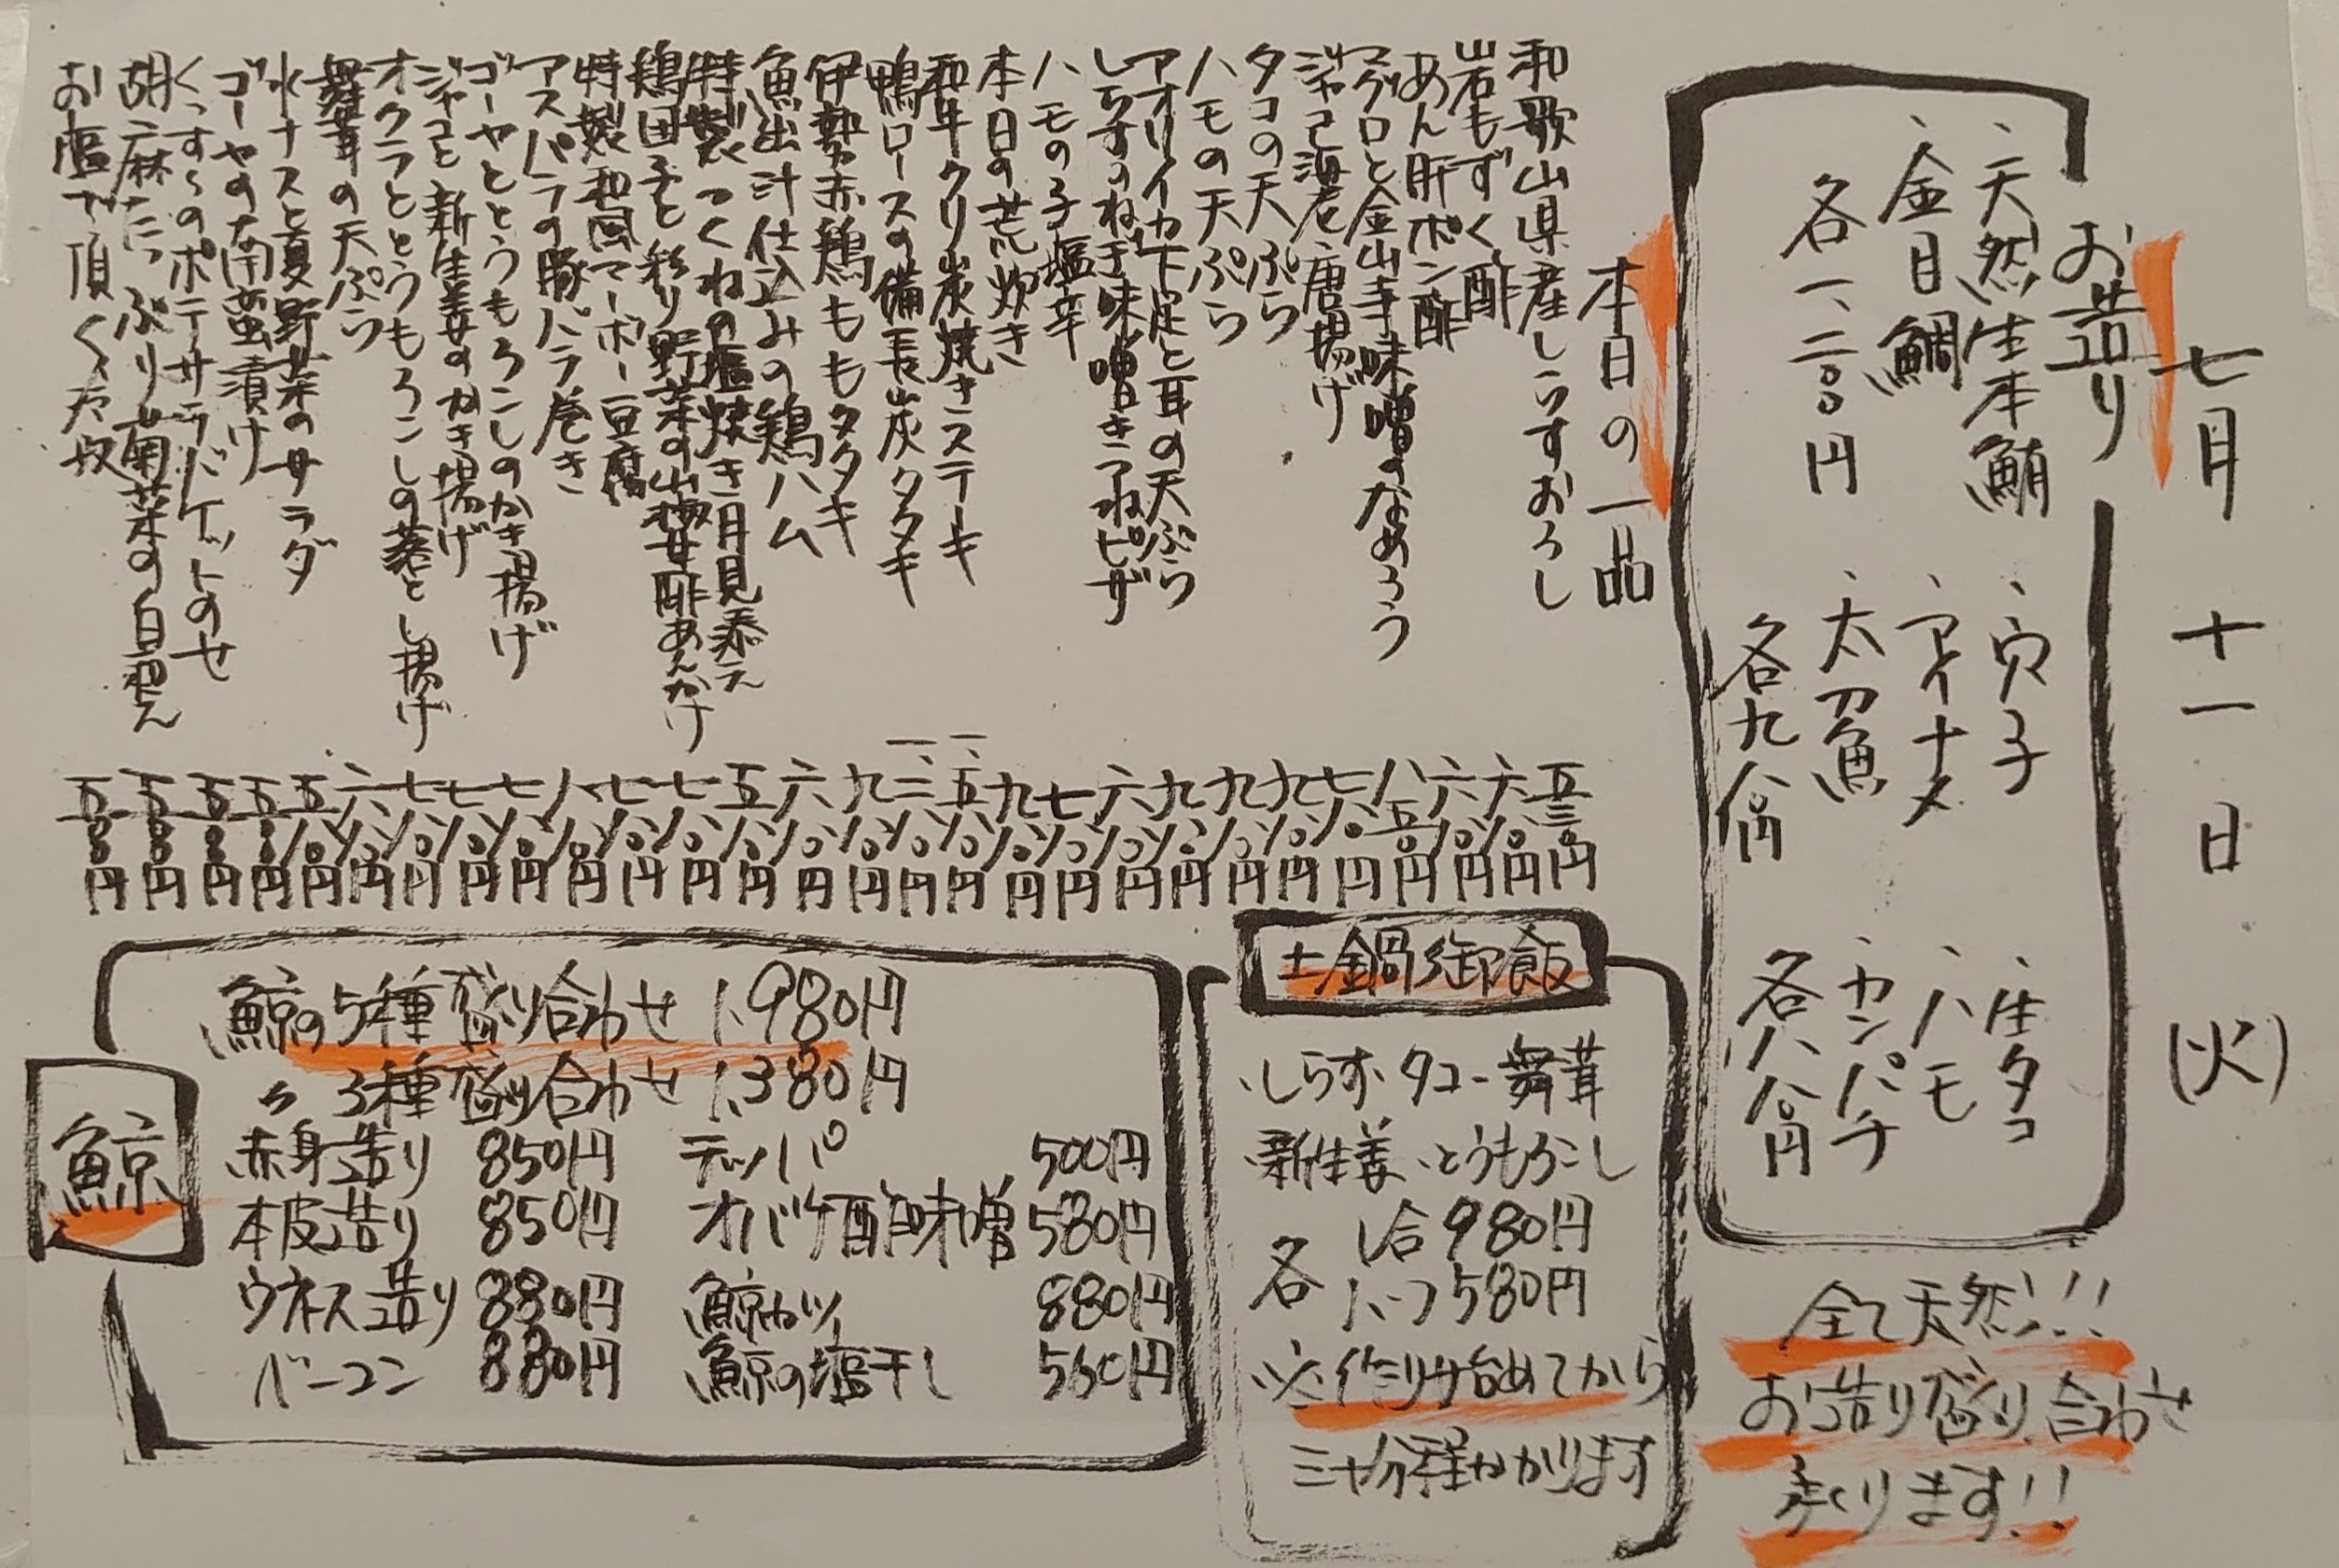 七月十一日(火)
お造り
、天然生本鮪
、金目鯛
各一、二〇〇円
、穴子
、アイナメ
、太刀魚
各九八〇円
、生タコ
、ハモ
、カンパチ
各八八〇円
全て天然!!
お造り盛り合わせ
承ります!!
本日の一品
和歌山県産しらすおろし 五三〇円
岩もずく酢 六八〇円
あん肝ポン酢 六八〇円
マグロと金山寺味噌のなめろう 八五〇円
ジャコ海老唐揚げ 七八〇円
タコの天ぷら 九八〇円
ハモの天ぷら 九八〇円
アオリイカ下足と耳の天ぷら 九八〇円
しらすのねぎ味噌きつねピザ 六八〇円
ハモの子塩辛 七八〇円
本日の荒炊き 九八〇円
和牛クリ炭焼きステーキ 一、五八〇円
鴨ロースの備長炭タタキ 一、二八〇円
伊勢赤鶏ももタタキ 九八〇円
魚出汁仕込みの鶏ハム 六八〇円
特製つくねの塩焼き月見添え 五八〇円
鶏団子と彩り野菜の山椒甘酢あんかけ 七八〇円
特製和風マーボー豆腐 七八〇円
アスパラの豚バラ巻き 八八〇円
ゴーヤととうもろこしのかき揚げ 七八〇円
ジャコと新生姜のかき揚げ 七八〇円
オクラととうもろこしの落とし揚げ 七八〇円
舞茸の天ぷら 六八〇円
水ナスと夏野菜のサラダ 五八〇円
ゴーヤの南蛮漬け
くっすんのポテサラバケットのせ
胡麻たっぷり菊菜の白和え 五八〇円
お塩で頂く冷奴 五〇〇円
土鍋御飯
・しらす・タコ・舞茸
・新生姜・とうもろこし
各 1合980円
1.5つ580円
※作り始めてから
三十分程かかります
鯨
鯨の5種盛り合わせ 1,980円
〃 3種盛り合わせ 1,380円
赤身造り 850円 テッパ 500円
本皮造り 850円 オバケ酢味噌 580円
ウネス造り 880円 鯨カツ 880円
ベーコン 880円 鯨の塩干し 560円